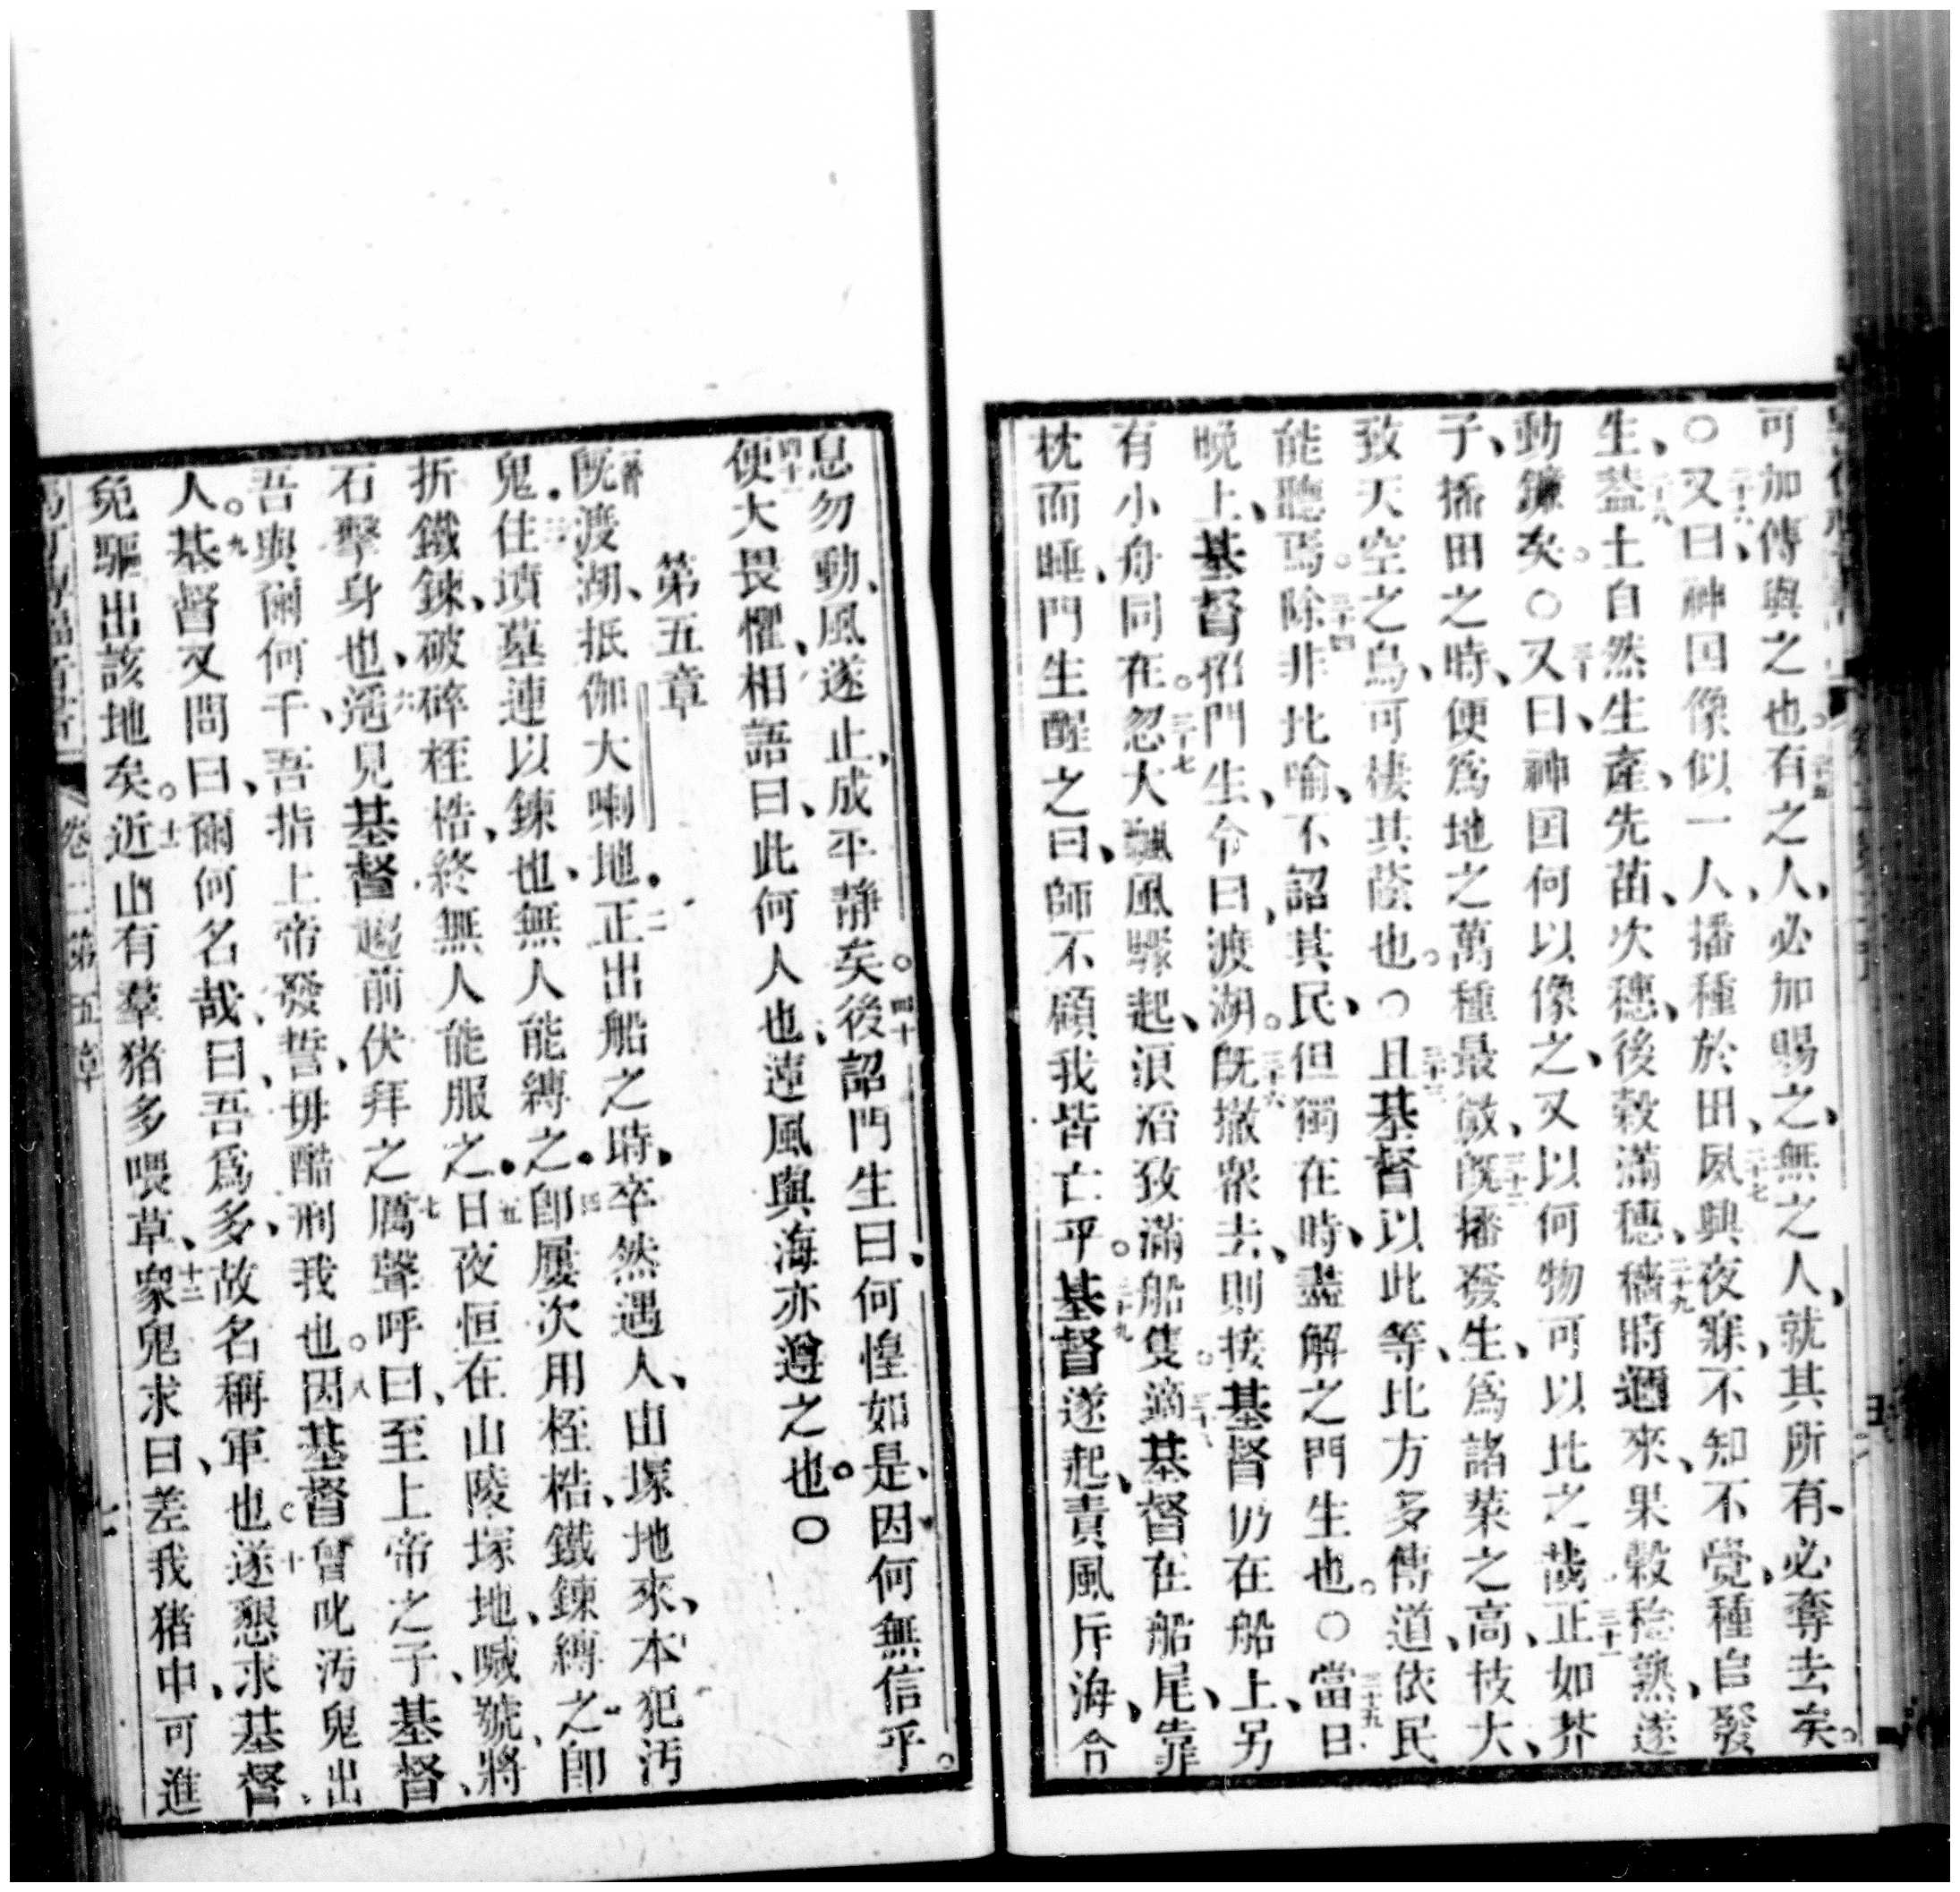 可加傳與之也。二十五有之人、必加賜之、無之人、就其所有、必奪去矣。
○二十六又曰、神囯像似一人、播種於田、二十七夙興夜寐、不知不覺、種自發
生、二十八葢土自然生產、先苗、次穗、後穀滿穗、二十九穡時廼來、果穀稔熟、遂
動鐮矣。○三十又曰、神囯何以像之、又以何物可以比之哉、三十一正如芥
子、播田之時、便爲地之萬種最微、三十二旣播發生、爲諸菜之高、枝大、
致天空之鳥、可棲其蔭也。○三十三且基督以此等、比方多傳道、依民
能聽焉。三十四除非比喻、不詔其民、但獨在時、盡解之門生也。○三十五當日
晚上、基督招門生、令曰、渡湖。三十六旣撤衆去、則接基督仍在船上、另
有小舟同在。三十七忽大颶風驟起、浪滔致滿船隻。三十八適基督在船尾、靠
枕而睡、門生醒之曰、師不顧我皆亡乎。三十九基督遂起、責風斥海、令
息勿動、風遂止、成平靜矣。四十後詔門生曰、何惶如是、因何無信乎。
四十一便大畏懼、相語曰、此何人也、連風與海亦遵之也。○
第五章
旣渡湖、抵伽大喇地。二正出船之時、卒然遇人、由塚地來、本犯汚
鬼。三住墳墓、連以鍊也、無人能縛之。四卽屢次用桎梏、鐵鍊縛之、卽
折鐵鍊、破碎桎梏、終無人能服之。五日夜恒在山陵塚地、喊號、將
石擊身也、六遥見基督、趨前伏拜之、七厲聲呼曰、至上帝之子、基督、
吾與爾何干、吾指上帝發誓、毋酷刑我也。八因基督曾叱汚鬼出
人。九基督又問曰、爾何名哉、曰、吾爲多、故名稱軍也。十遂懇求基督、
免驅出該地矣。十一近山有羣猪多喂草、十二衆鬼求曰、差我猪中、可進
卷二第五章
七